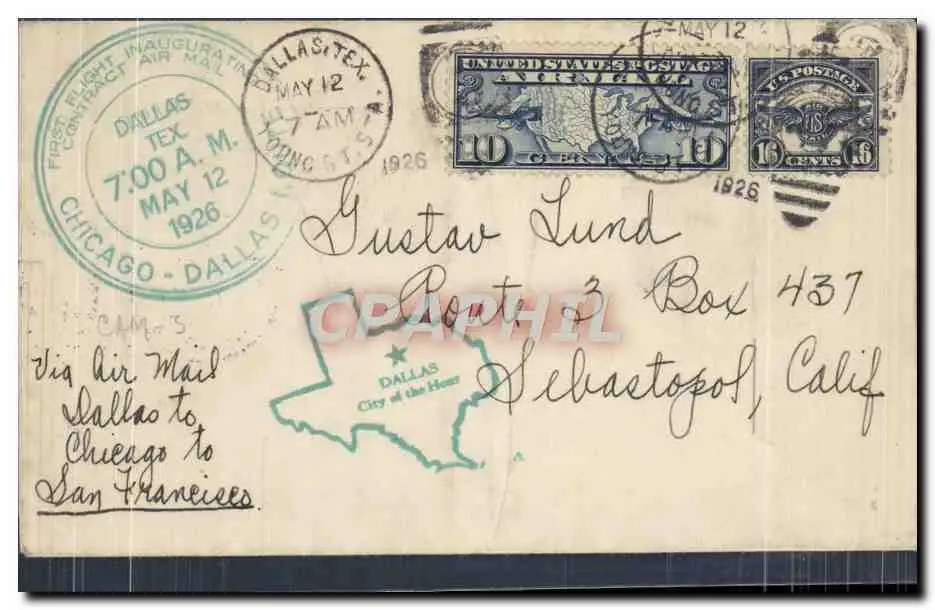 FIRST FLIGHT INAUGURATING
CONTRACT AIR MAIL
DALLAS
TEX
7:00 A. M.
MAY 12
1926
CHICAGO - DALLAS
DALLAS, TEX.
MAY 12
7 AM
1926
UNITED STATES POSTAGE
AIR MAIL
10 CENTS 10
MAY 12
1926
U.S. POSTAGE
US
16 CENTS 16
Gustav Lund
Route 3 Box 437
Sebastopol, Calif
CPAPHIL
CAM-3
Via Air Mail
Dallas to
Chicago to
San Francisco
DALLAS
City of the Hour